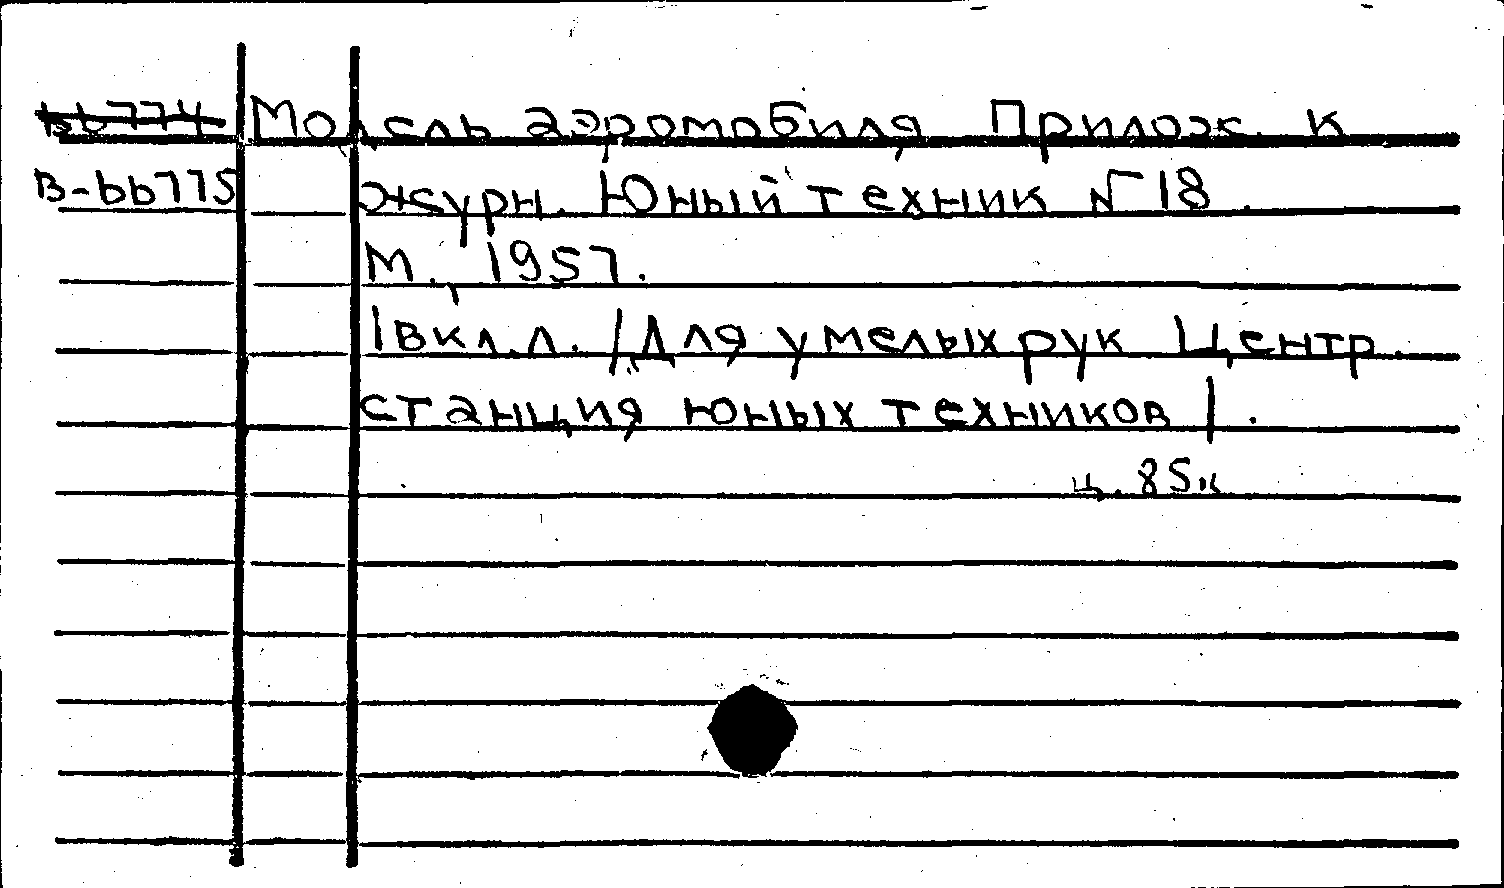 bb774 Модель аэромобиля Прилож. к
В-bb775 журн. Юный техник № 18.
М., 1957.
1 вкл.л. /Для умелых рук Центр.
станция юных техников/.
ц. 85 к